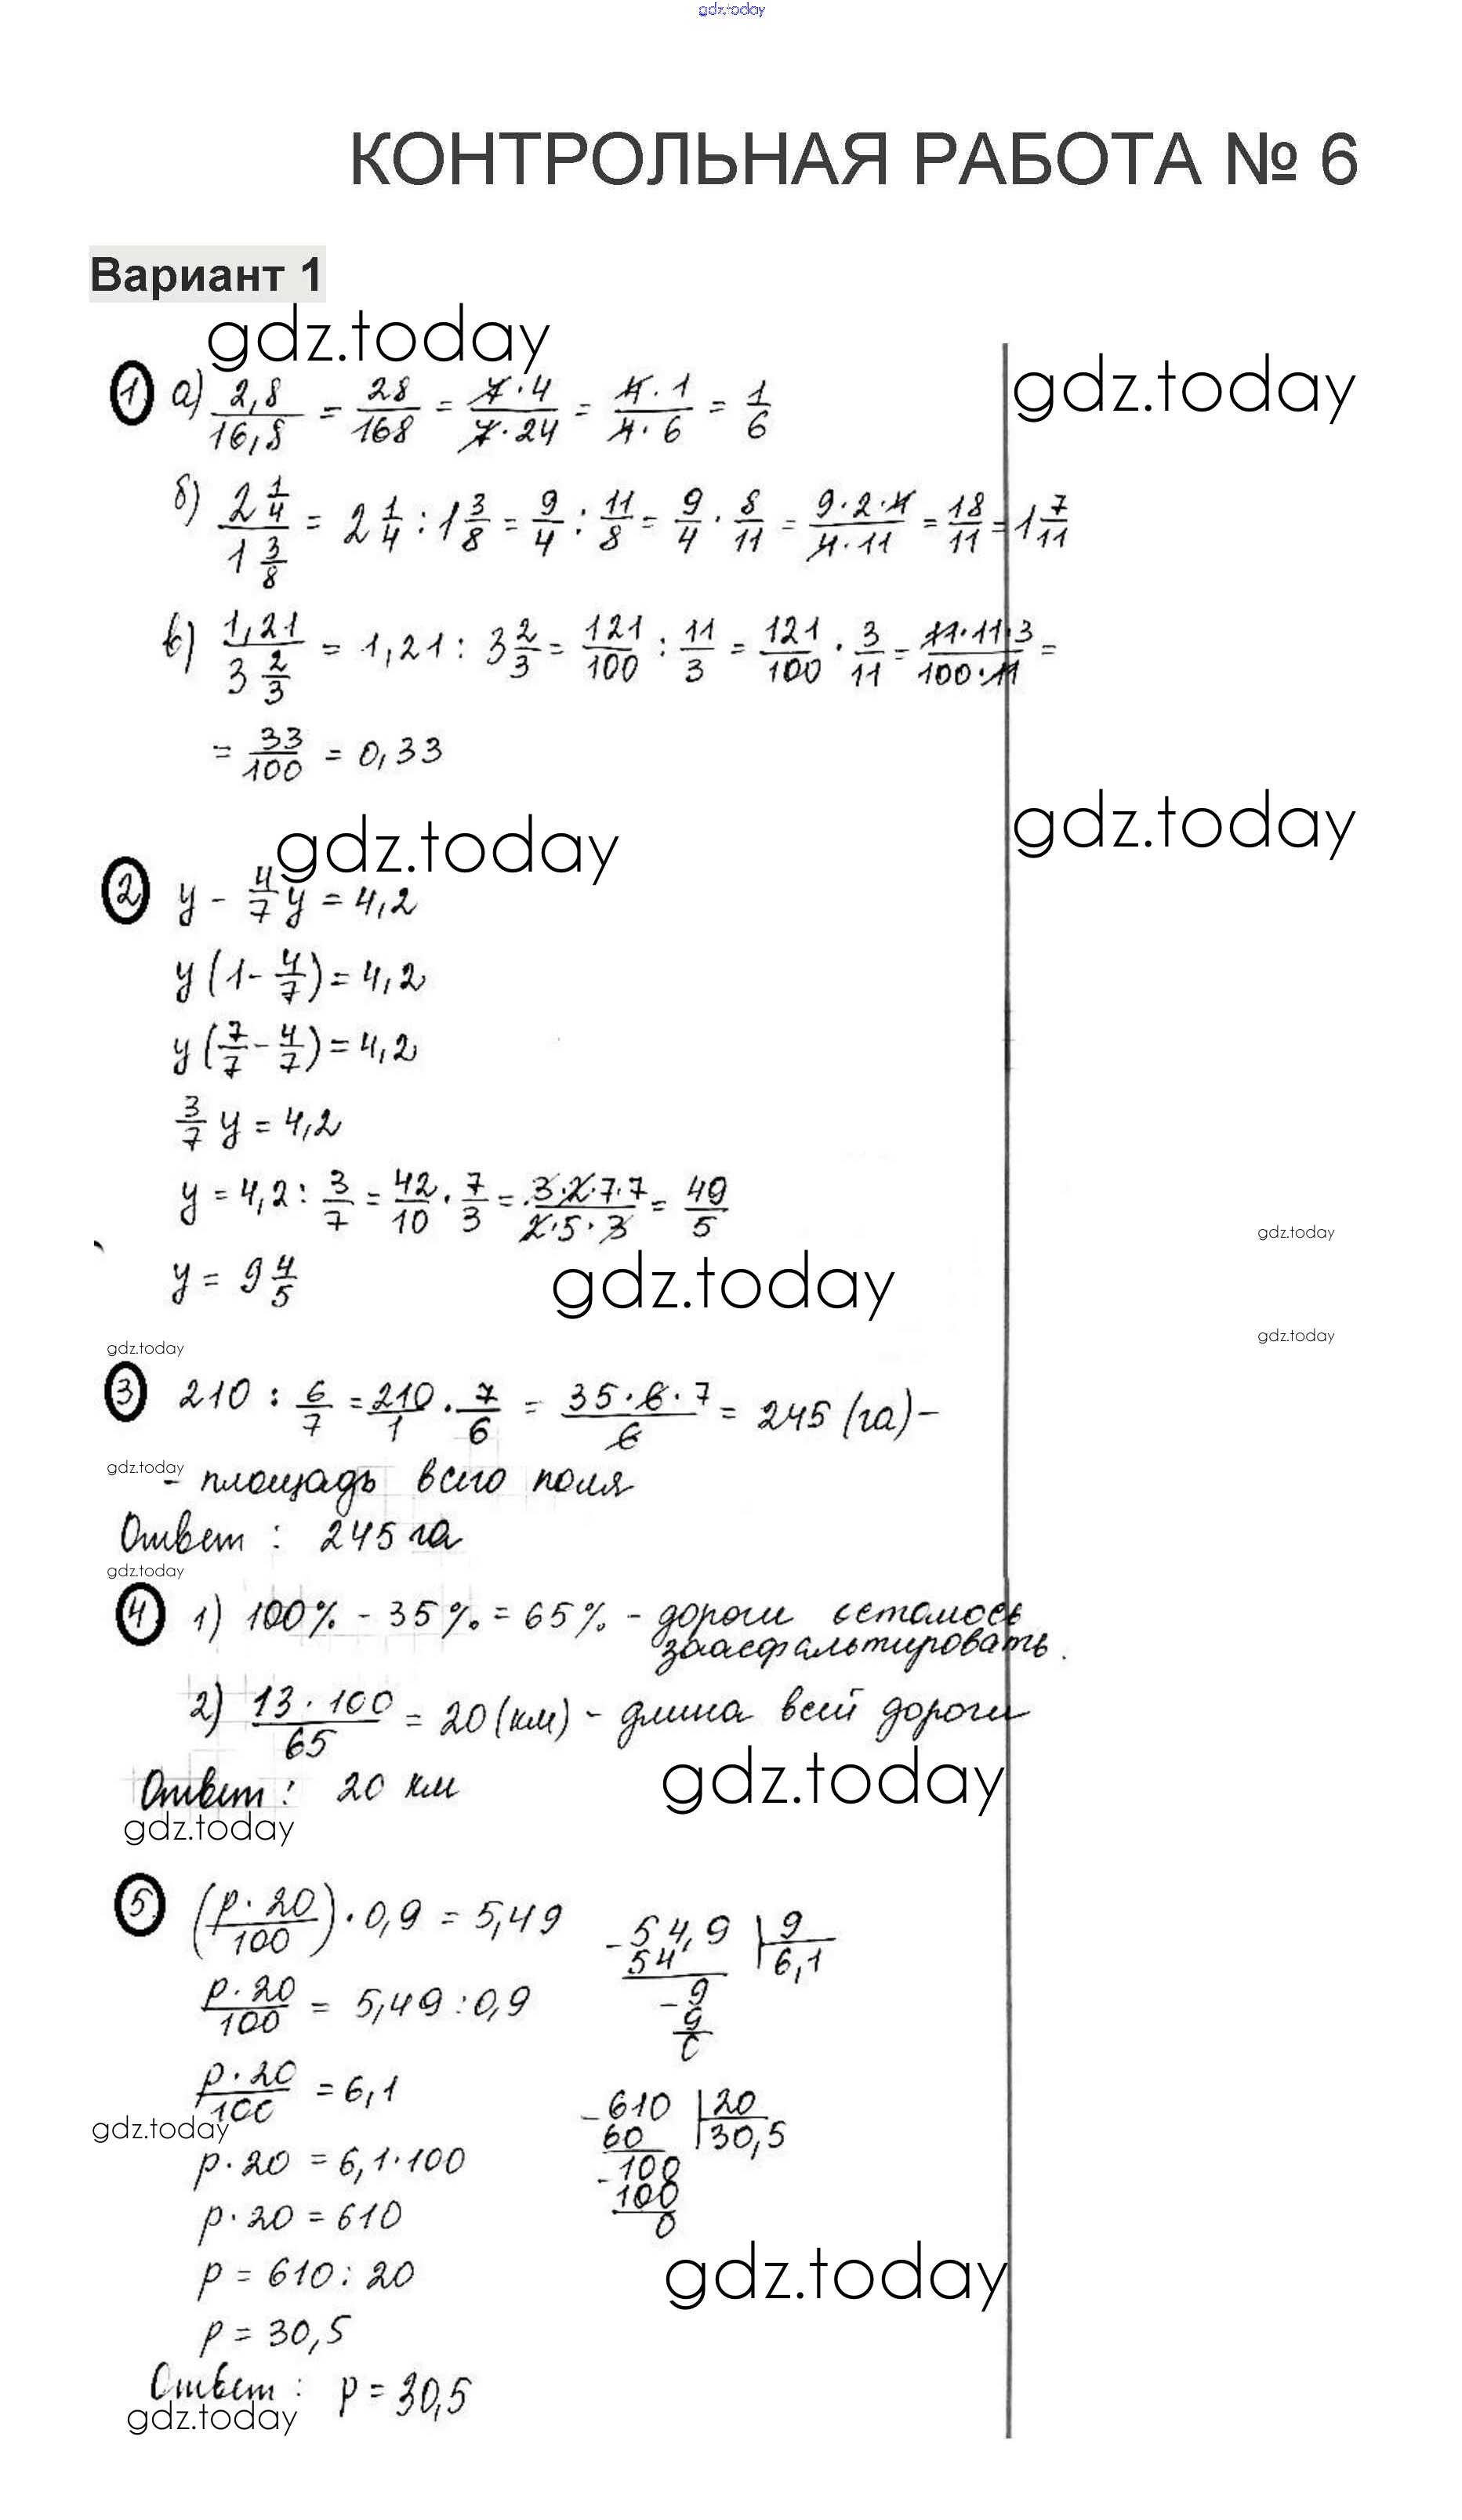 gdz.today
КОНТРОЛЬНАЯ РАБОТА № 6
Вариант 1
gdz.today
gdz.today
1 а) 2,8/16,8 = 28/168 = 7·4/7·24 = 4·1/4·6 = 1/6
б) 2 1/4 / 1 3/8 = 2 1/4 : 1 3/8 = 9/4 : 11/8 = 9/4 · 8/11 = 9·2·4/4·11 = 18/11 = 1 7/11
в) 1,21 / 3 2/3 = 1,21 : 3 2/3 = 121/100 : 11/3 = 121/100 · 3/11 = 11·11·3/100·11 =
= 33/100 = 0,33
gdz.today
gdz.today
2 y - 4/7 y = 4,2
y (1 - 4/7) = 4,2
y (7/7 - 4/7) = 4,2
3/7 y = 4,2
y = 4,2 : 3/7 = 42/10 · 7/3 = 3·2·7·7/2·5·3 = 49/5
gdz.today
y = 9 4/5
gdz.today
gdz.today
gdz.today
3 210 : 6/7 = 210/1 · 7/6 = 35·6·7/6 = 245 (га) -
gdz.today
- площадь всего поля
Ответ : 245 га
gdz.today
4 1) 100% - 35% = 65% - дороги осталось
заасфальтировать.
2) 13·100/65 = 20 (км) - длина всей дороги
gdz.today
Ответ : 20 км
gdz.today
5. (p·20/100) · 0,9 = 5,49
p·20/100 = 5,49 : 0,9
p·20/100 = 6,1
gdz.today
p·20 = 6,1·100
p·20 = 610
p = 610 : 20
p = 30,5
-54,9 | 9
54 6,1
-9
9
0
-610 | 20
60 30,5
-100
100
0
gdz.today
Ответ : p = 30,5
gdz.today